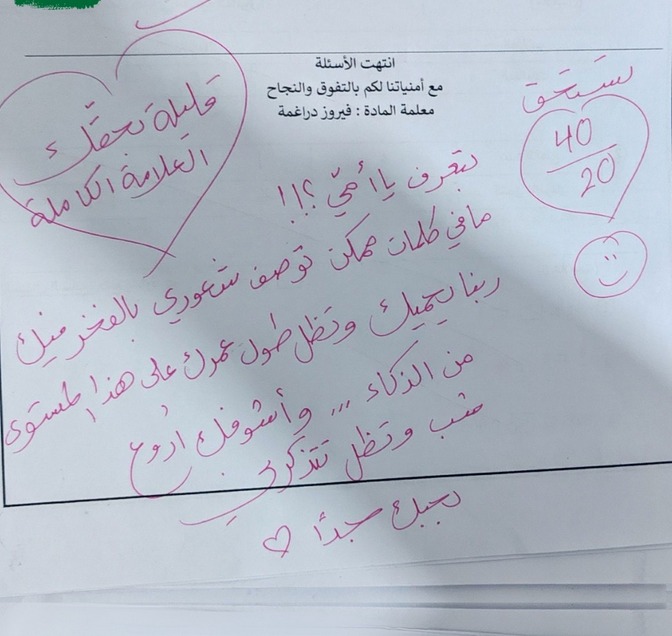 انتهت الأسئلة
مع أمنياتنا لكم بالتفوق والنجاح
معلمة المادة : فيروز دراغمة
قليلة بحقّك
العلامة الكاملة
يستحق
40
20
بتعرف يا أميّ ؟!!
ما في كلمات ممكن توصف شعوري بالفخر فيك
ربنا يحميك وتظل طول عمرك على هذا المستوى
من الذكاء ,,, وأشوفك أروع
شب وتظل تتذكرني
بحبك جدًا ♡